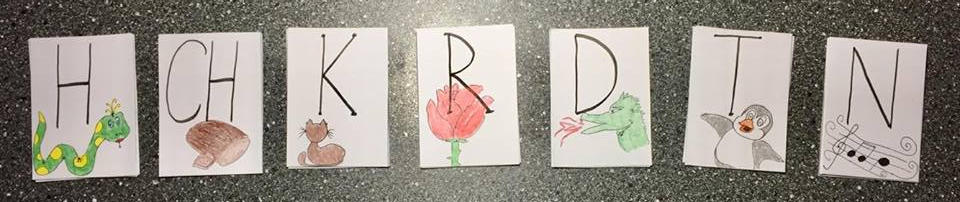 H CH K R D T N